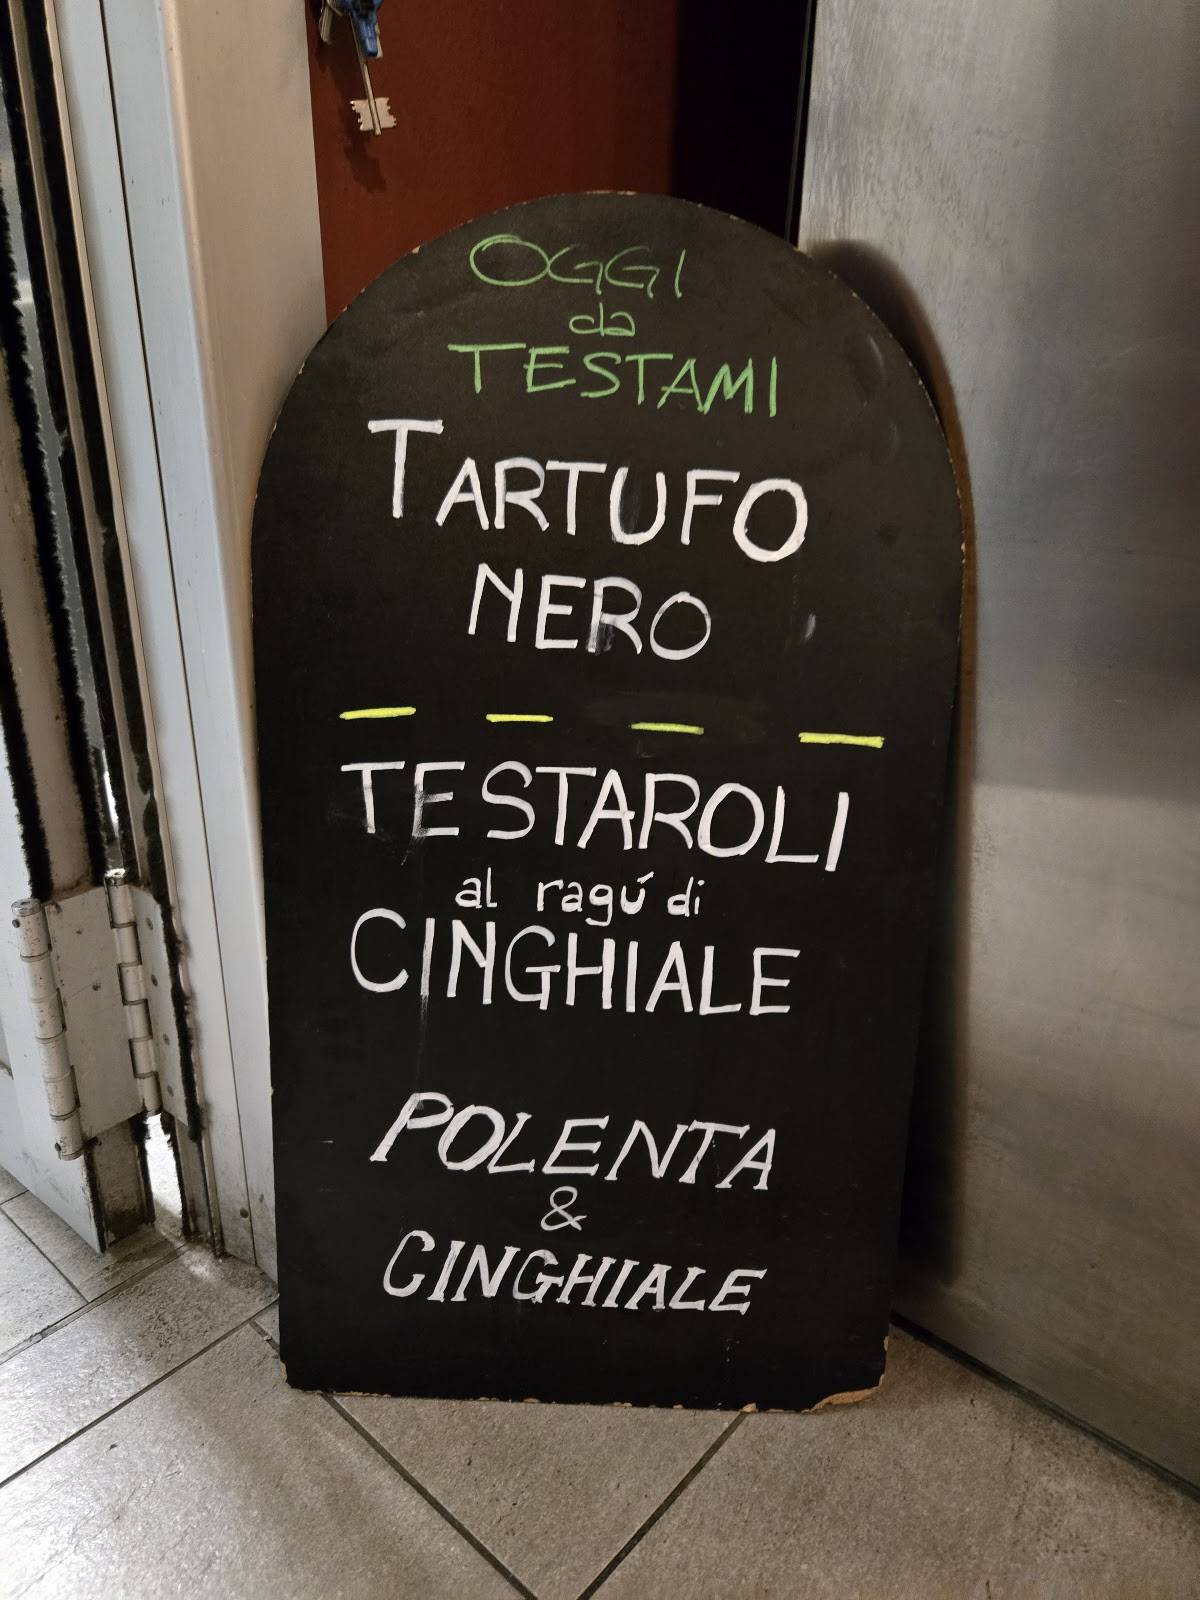 OGGI
da
TESTAMI
TARTUFO
NERO
TESTAROLI
al ragú di
CINGHIALE
POLENTA
&
CINGHIALE